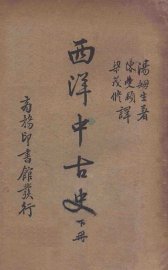 湯姆生著
陳受頤
梁茂修 譯
西洋中古史 下冊
商務印書館發行